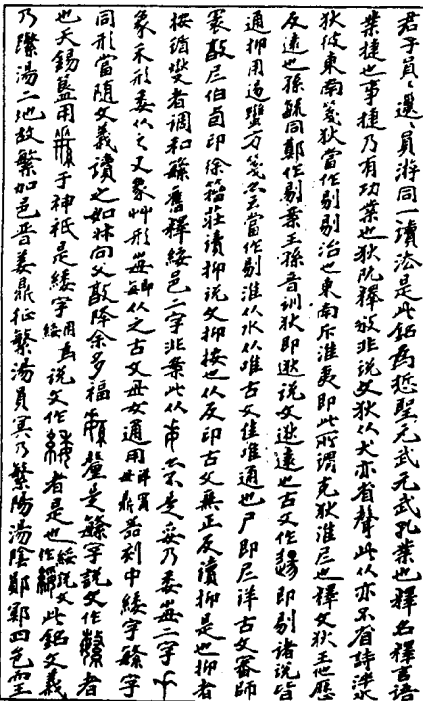 君子員〻邋員游同一讀法是此銘為悊聖元武元武孔業也釋名釋言語
業捷也事捷乃有功業也狄阮釋放非說文狄从犬亦省聲此从亦不省詩泮水
狄彼東南箋狄當作剔剔治也東南斥淮夷即此所謂克狄淮尸也釋文狄王他歷
反遠也孫毓同鄭作剔業王孫音訓狄即逖說文逖遠也古文作逷即剔諸說皆
通抑用逷蠻方箋云當作剔淮从水从唯古文隹唯通也尸即𡰥詳古文審師
㝨𣪘𡰥伯卣印徐籀莊讀抑說文抑按也从反印古文無正反讀抑是也抑者
按循燮者調和緐舊釋綏邑二字非業此从𠦪不是妥乃委每二字
象禾形委从之又象艸形每毓从之古文母女通用詳寡母鼎器刻中緌字緐字
同形當隨文義讀之如𣏟向父𣪘降余多福釐是緐字說文作者
也天錫簋用于神祇是緌字用為綏說文作者是也綏說文作此銘文義
乃緐湯二地故緐加邑晋姜鼎征緐湯員冥乃緐陽湯陰鄭鄴四邑里